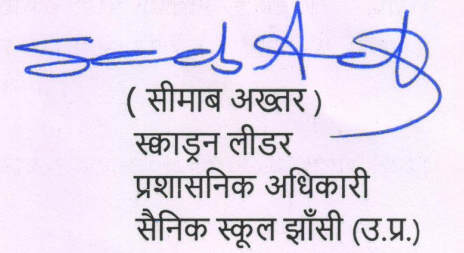 ( सीमाब अख्तर )
स्क्वाड्रन लीडर
प्रशासनिक अधिकारी
सैनिक स्कूल झाँसी (उ.प्र.)